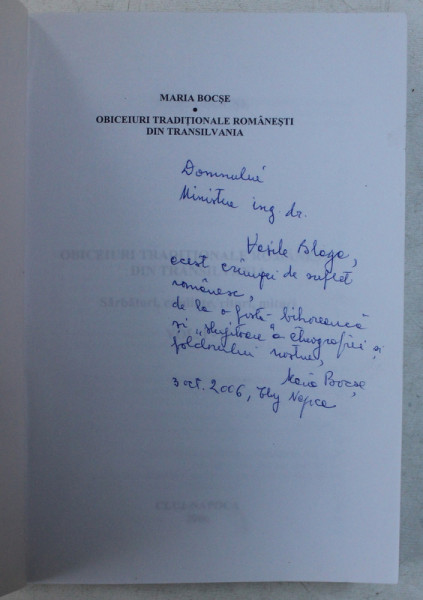 MARIA BOCȘE
•
OBICEIURI TRADIȚIONALE ROMÂNEȘTI
DIN TRANSILVANIA
Domnului
Ministru ing. dr.
Vasile Blaga,
acest crâmpei de suflet
românesc,
de la o fostă bihoreancă
și „slujitoare” a etnografiei și
folclorului nostru,
Maria Bocșe
3 oct. 2006, Cluj Napoca
OBICEIURI TRADIȚIONALE
DIN TRANSILVANIA
CLUJ-NAPOCA